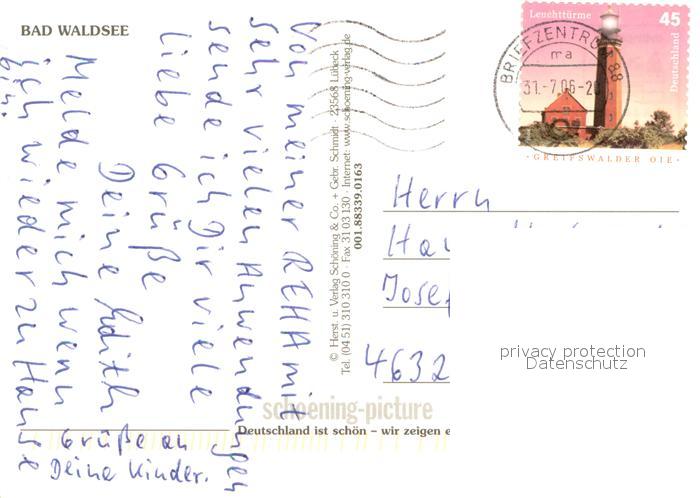 BAD WALDSEE
Von meiner REHA mit
sehr vielen Anwendungen
sende ich Dir viele
liebe Grüße
Deine Edith
Melde mich wenn
ich wieder zu Hause
bin.
Grüße an
Deine Kinder.
© Herst. u. Verlag Schöning & Co. + Gebr. Schmidt · 23568 Lübeck
Tel. (04 51) 310 310 0 · Fax 31 03 130 · Internet: www.schoening-verlag.de
001.88339.0163
Leuchttürme 45
Deutschland
GREIFSWALDER OIE
BRIEFZENTRUM 88
ma
31.-7.06-20
Herrn
Ha
Josef
4632
privacy protection
Datenschutz
schoening-picture
Deutschland ist schön – wir zeigen e